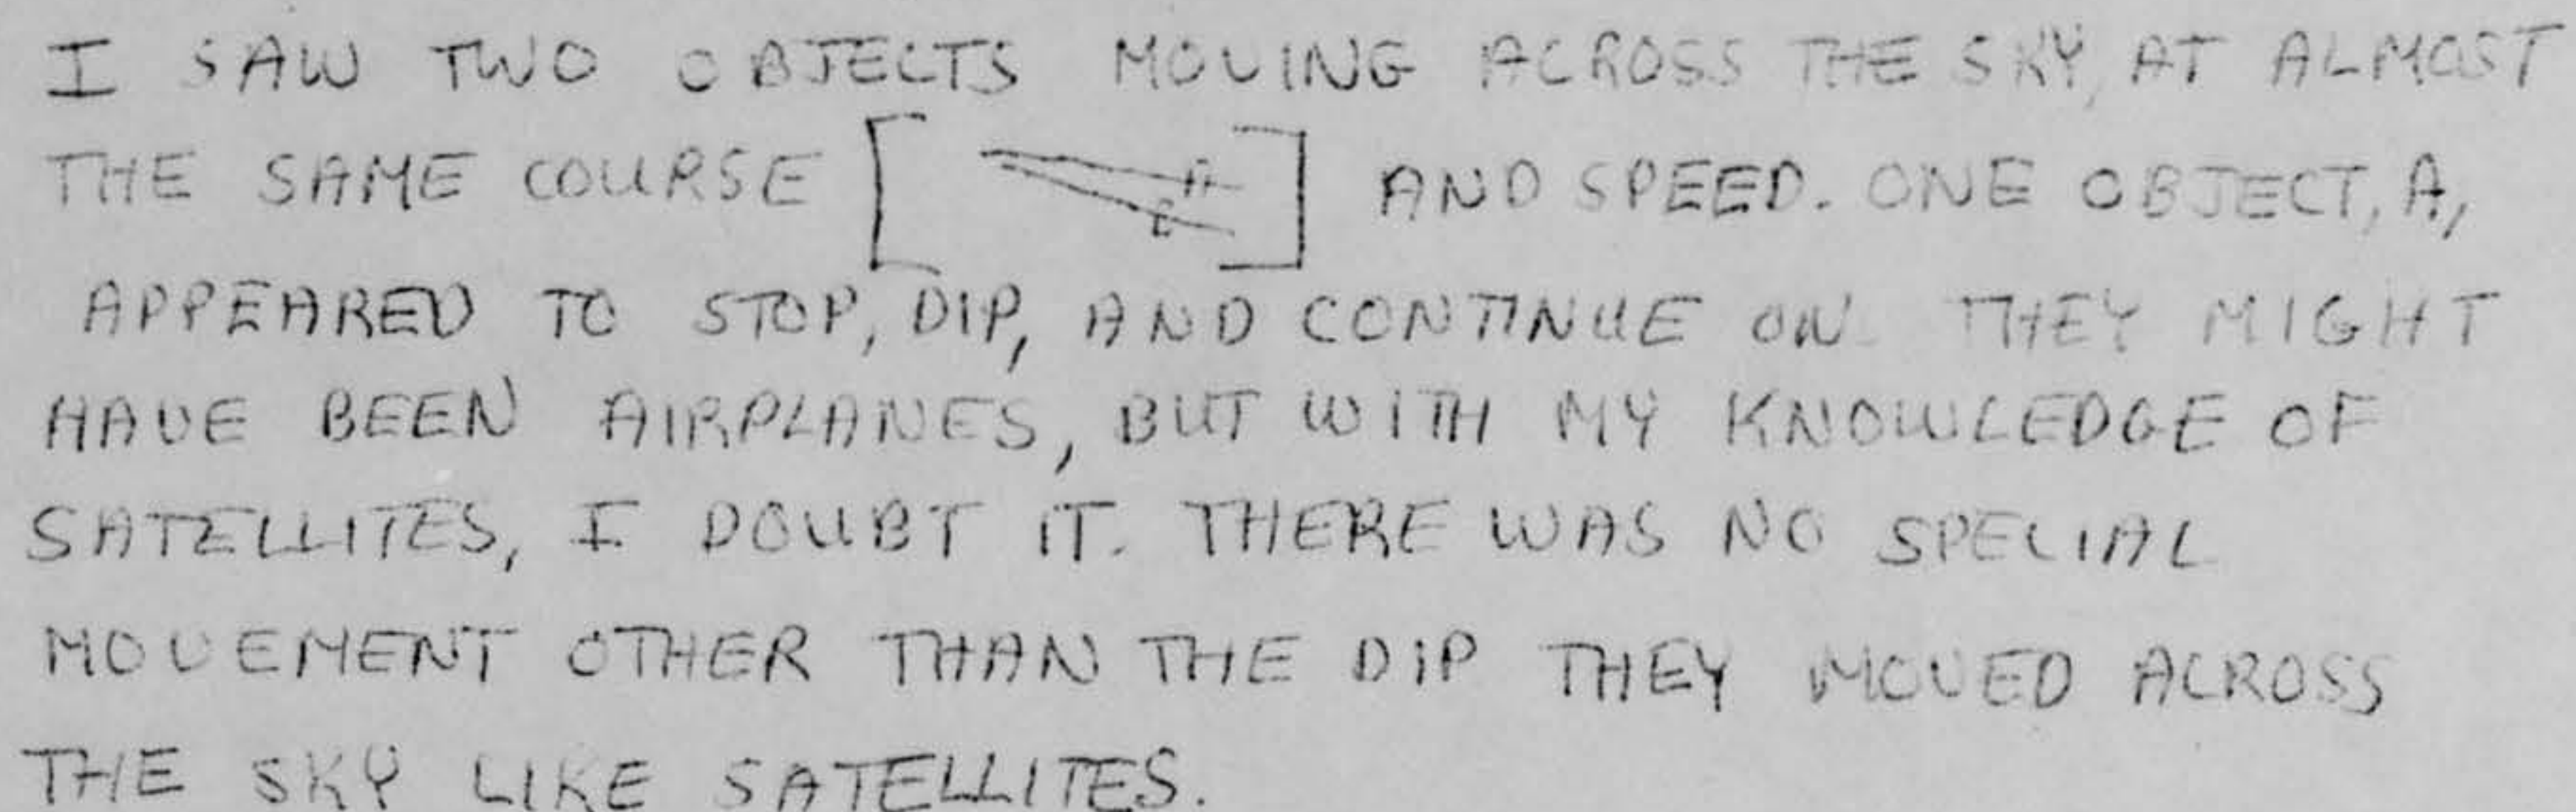 I SAW TWO OBJECTS MOVING ACROSS THE SKY, AT ALMOST
THE SAME COURSE [ A B ] AND SPEED. ONE OBJECT, A,
APPEARED TO STOP, DIP, AND CONTINUE ON. THEY MIGHT
HAVE BEEN AIRPLANES, BUT WITH MY KNOWLEDGE OF
SATELLITES, I DOUBT IT. THERE WAS NO SPECIAL
MOVEMENT OTHER THAN THE DIP THEY MOVED ACROSS
THE SKY LIKE SATELLITES.